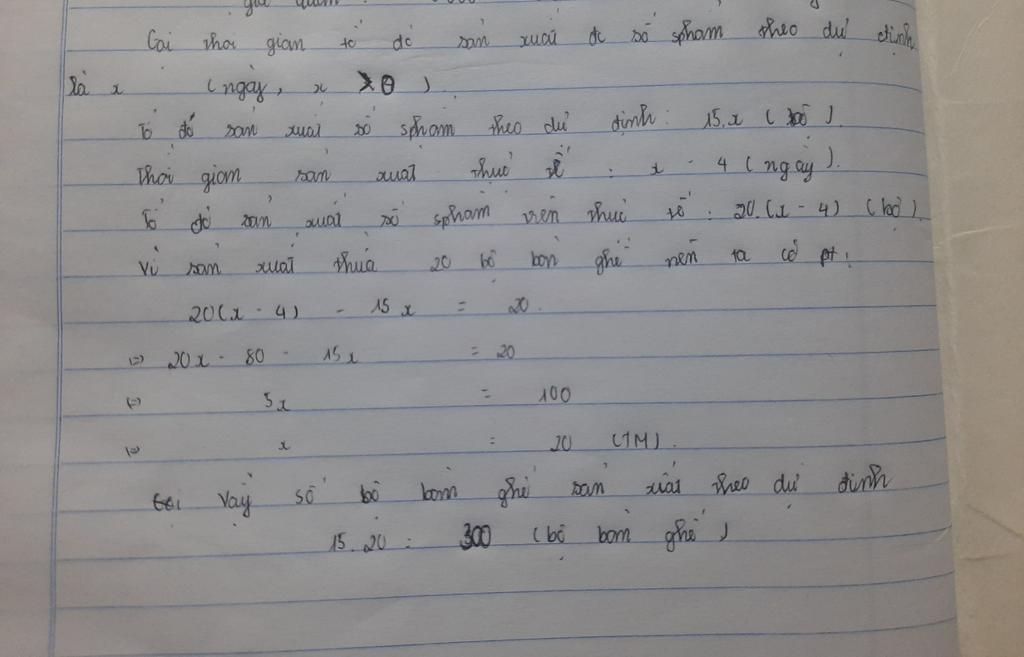 Gọi thời gian tổ đó sản xuất đc số spham theo dự định
là x (ngày, x > 0)
Tổ đó sản xuất số spham theo dự định: 15.x (bộ).
Thời gian sản xuất thực tế : x - 4 (ngày).
Tổ đó sản xuất số spham trên thực tế : 20.(x - 4) (bộ).
Vì sản xuất thừa 20 bộ bàn ghế nên ta có pt:
20(x - 4) - 15x = 20.
(=) 20x - 80 - 15x = 20
(=) 5x = 100
(=) x = 20 (TM).
Vậy số bộ bàn ghế sản xuất theo dự định
15.20 = 300 (bộ bàn ghế)